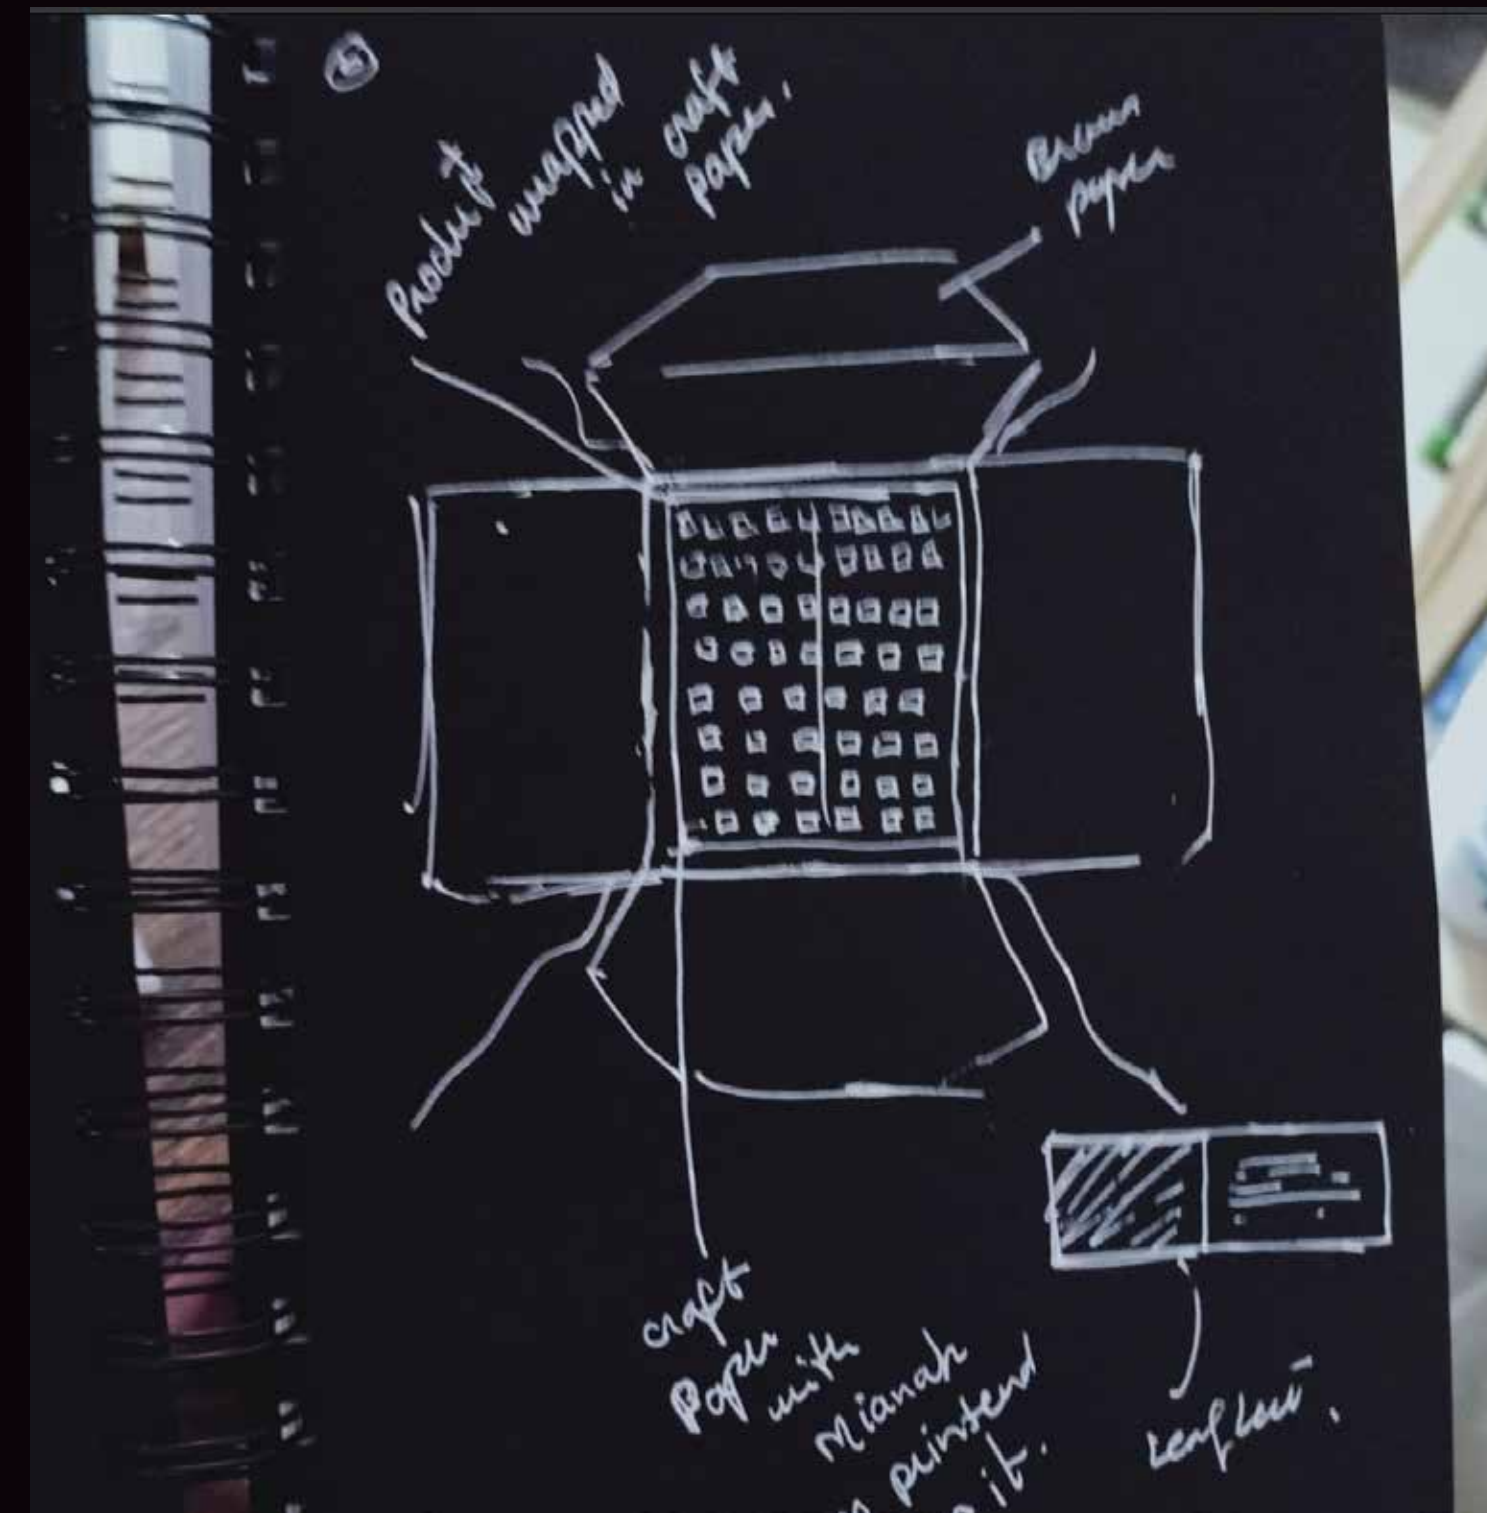 5
Product
wrapped
in craft
paper.
Brown
paper
craft
Paper
with
Mianah
printend
it.